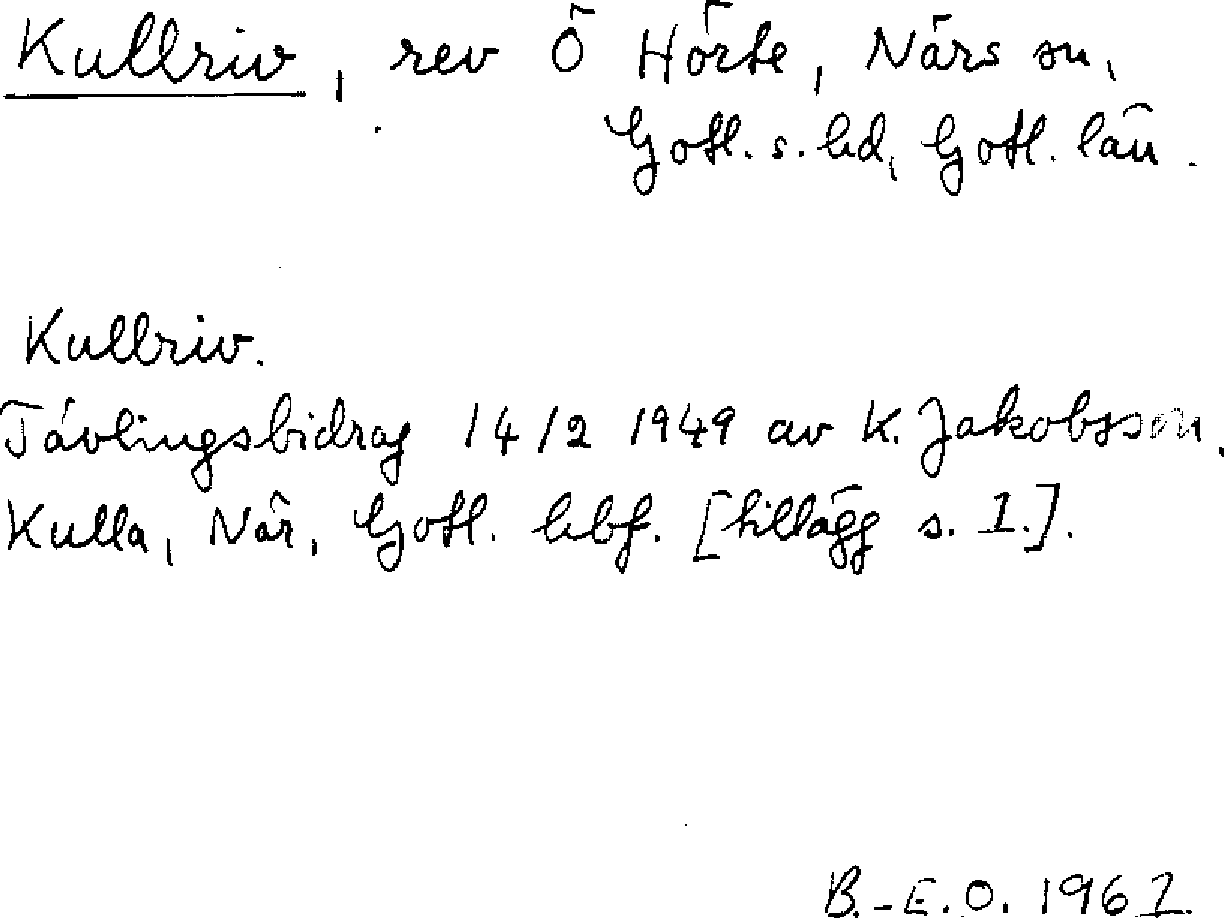 Kullriv, rev Ö Hörte, Närs sn,
Gotl. s. hd, Gotl. län.
Kullriv.
Tävlingsbidrag 14/2 1949 av K. Jakobsson.
Kulla, När, Gotl. hbf. [tillägg s. 1.].
B.-E.O. 1961